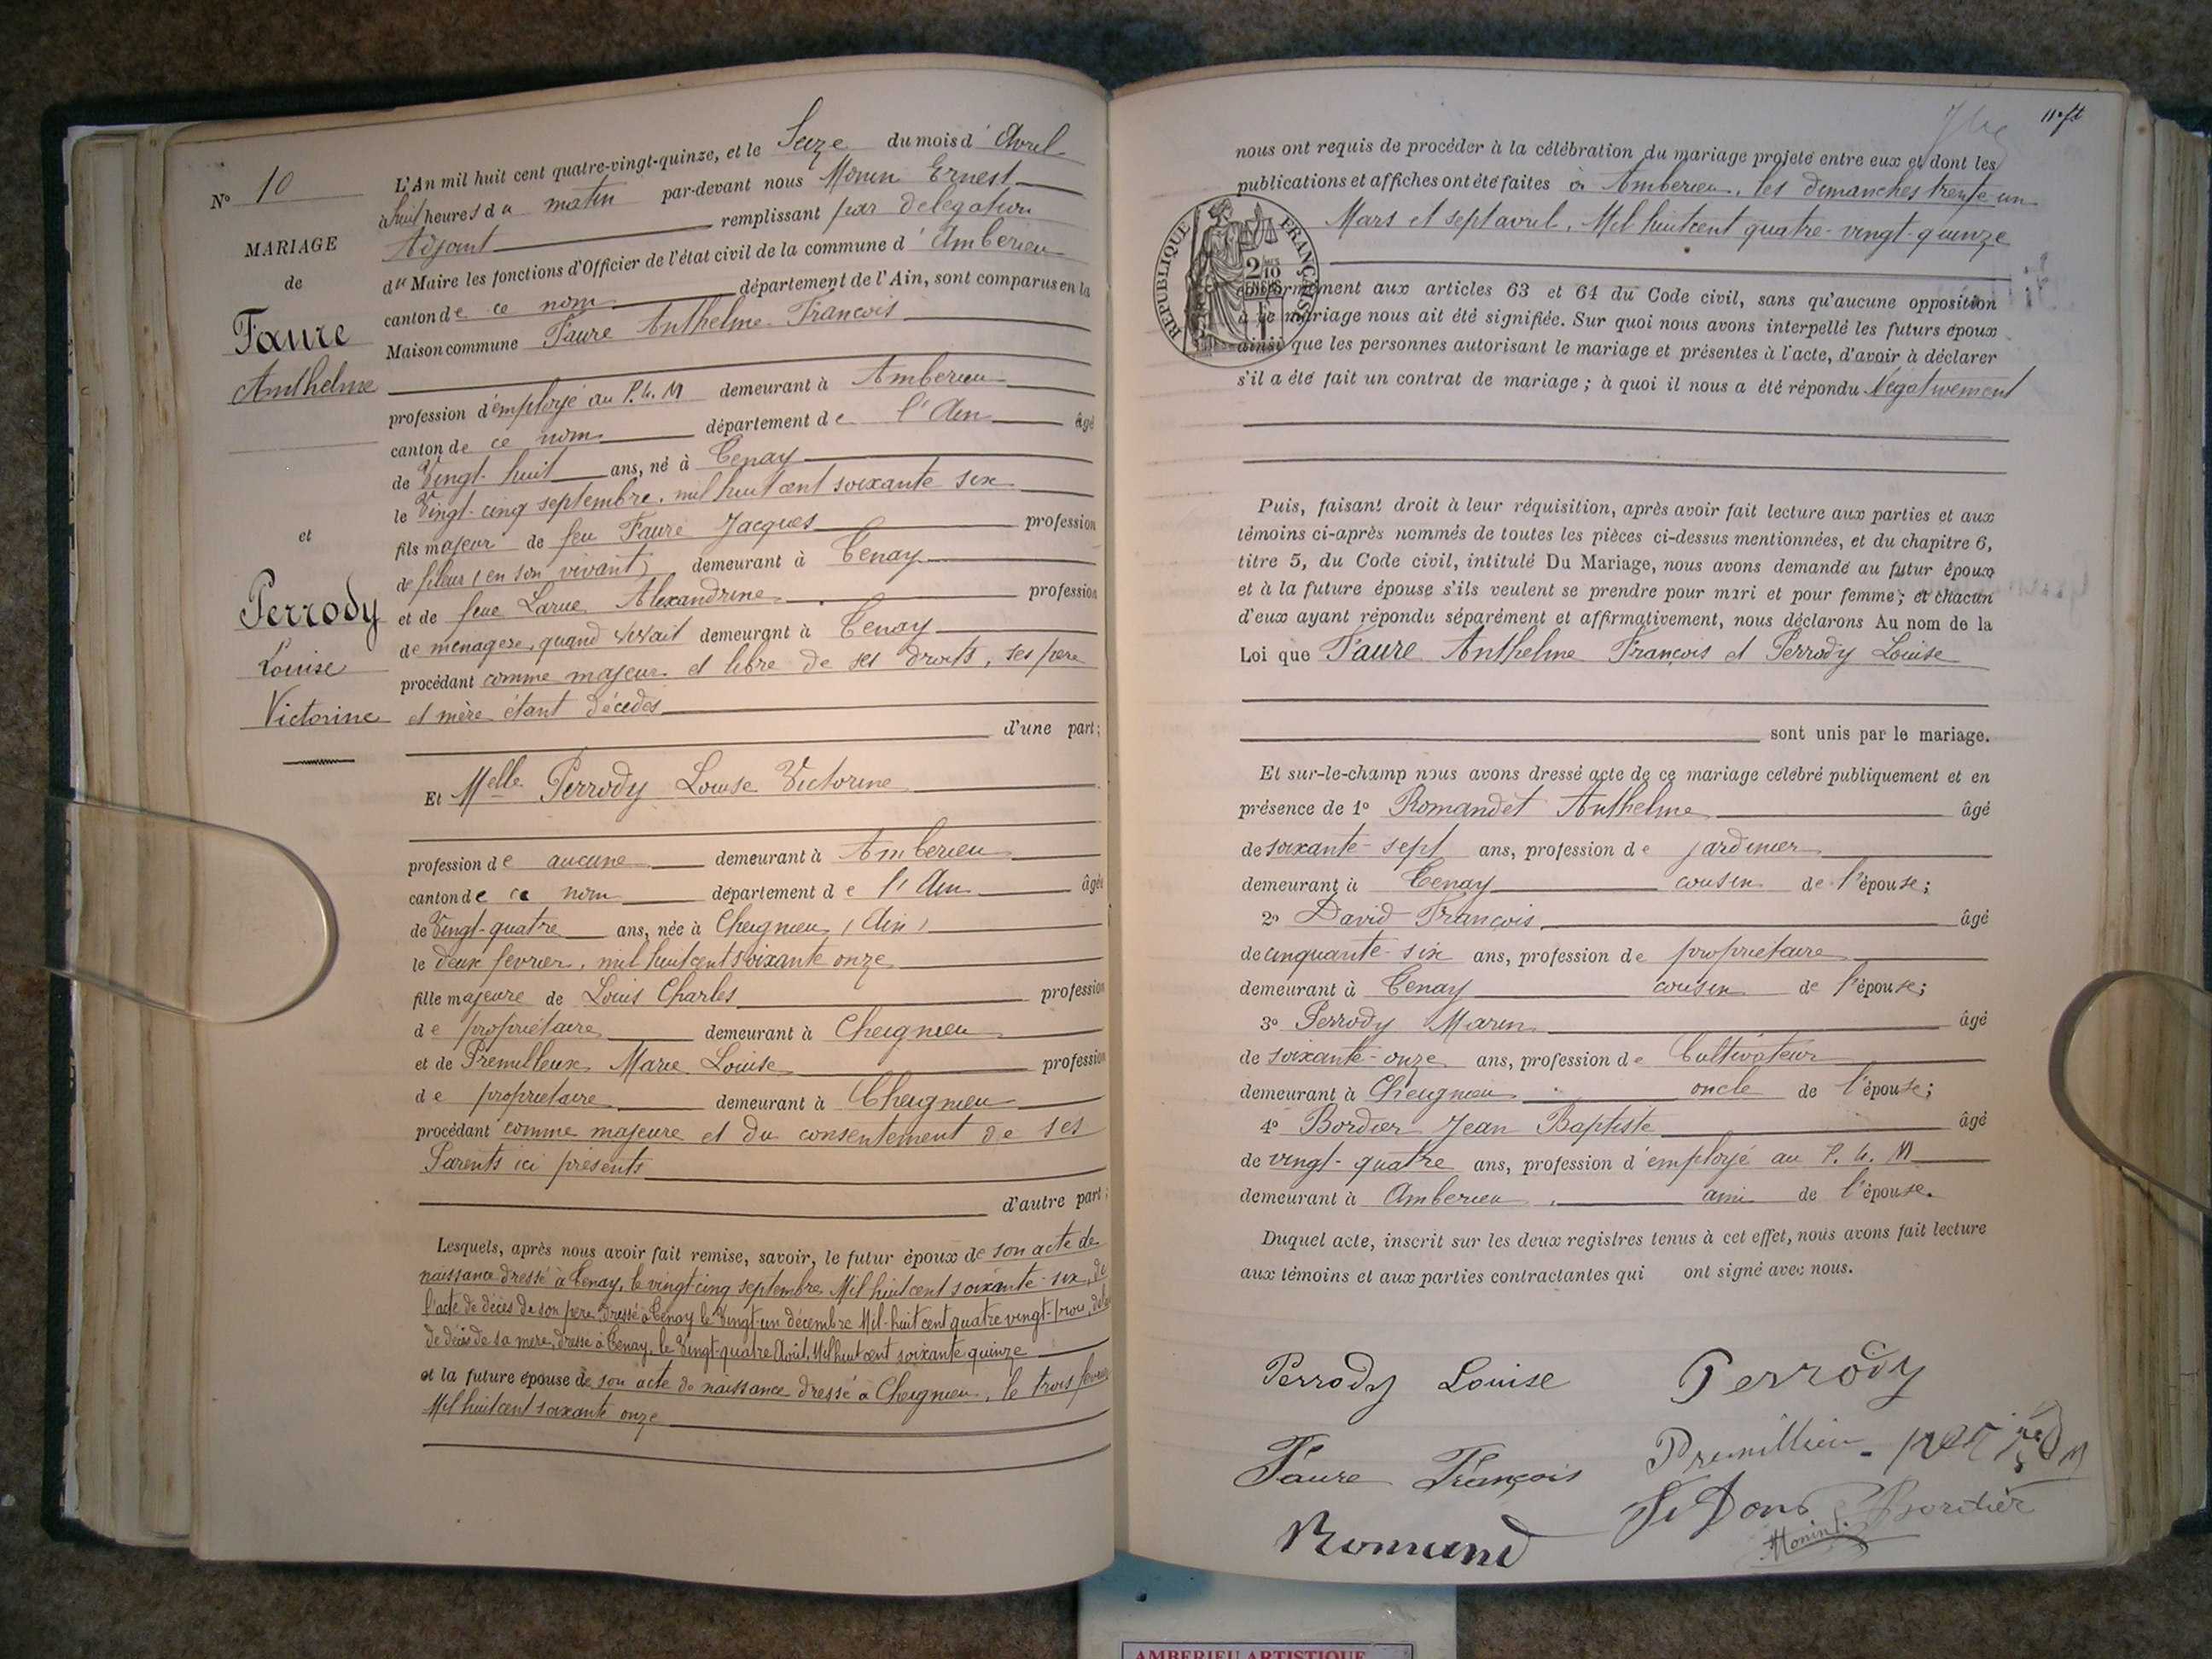 N° 10
MARIAGE
de
Faure
Anthelme
et
Perrody
Louise
Victorine
L'An mil huit cent quatre-vingt-quinze, et le Seize du mois d'Avril
à huit heures du matin par-devant nous Monin Ernest
Adjoint remplissant par délégation
du Maire les fonctions d'Officier de l'état civil de la commune d'Amberieu
canton de ce nom département de l'Ain, sont comparus en la
Maison commune Faure Anthelme François
profession d'employé au P. L. M demeurant à Amberieu
canton de ce nom département de l'Ain âgé
de Vingt-huit ans, né à Tenay
le Vingt-cinq septembre, mil huit cent soixante six
fils majeur de feu Faure Jacques profession
de fileur (en son vivant) demeurant à Tenay
et de feue Larue Alexandrine profession
de menagere, quand vivait demeurant à Tenay
procédant comme majeur et libre de ses droits, ses père
et mère étant décédés
d'une part;
Et Melle Perrody Louise Victorine
profession de aucune demeurant à Amberieu
canton de ce nom département de l'Ain âgée
de Vingt-quatre ans, née à Cheignieu (Ain)
le deux fevrier, mil huit cent soixante onze
fille majeure de Louis Charles profession
de propriétaire demeurant à Cheignieu
et de Premillieux Marie Louise profession
de propriétaire demeurant à Cheignieu
procédant comme majeure et du consentement de ses
Parents ici présents
d'autre part;
Lesquels, après nous avoir fait remise, savoir, le futur époux de son acte de
naissance dressé à Tenay, le vingt-cinq septembre Mil huit cent soixante-six, de
l'acte de décès de son père dressé à Tenay le Vingt-un décembre Mil-huit cent quatre vingt-trois, de
de décès de sa mère, dressé à Tenay, le Vingt-quatre Août, Mil huit cent soixante quinze
et la future épouse de son acte de naissance dressé à Cheignieu, le trois fevrier
Mil huit cent soixante onze
11 ft
nous ont requis de procéder à la célébration du mariage projeté entre eux et dont les
publications et affiches ont été faites à Amberieu, les dimanches trente-un
Mars et sept avril, Mil huit cent quatre-vingt-quinze
RÉPUBLIQUE FRANÇAISE
2/10
EN SUS
conformément aux articles 63 et 64 du Code civil, sans qu'aucune opposition
à ce mariage nous ait été signifiée. Sur quoi nous avons interpellé les futurs époux
ainsi que les personnes autorisant le mariage et présentes à l'acte, d'avoir à déclarer
s'il a été fait un contrat de mariage; à quoi il nous a été répondu Négativement
Puis, faisant droit à leur réquisition, après avoir fait lecture aux parties et aux
témoins ci-après nommés de toutes les pièces ci-dessus mentionnées, et du chapitre 6,
titre 5, du Code civil, intitulé Du Mariage, nous avons demandé au futur époux
et à la future épouse s'ils veulent se prendre pour mari et pour femme; et chacun
d'eux ayant répondu séparément et affirmativement, nous déclarons Au nom de la
Loi que Faure Anthelme François et Perrody Louise
sont unis par le mariage.
Et sur-le-champ nous avons dressé acte de ce mariage célébré publiquement et en
présence de 1° Romandet Anthelme âgé
de soixante-sept ans, profession de jardinier
demeurant à Tenay cousin de l'épouse;
2° David François âgé
de cinquante-six ans, profession de propriétaire
demeurant à Tenay cousin de l'épouse;
3° Perrody Marin âgé
de soixante-onze ans, profession de Cultivateur
demeurant à Cheignieu oncle de l'épouse;
4° Bordier Jean Baptiste âgé
de vingt-quatre ans, profession d'employé au P. L. M
demeurant à Amberieu, ami de l'épouse.
Duquel acte, inscrit sur les deux registres tenus à cet effet, nous avons fait lecture
aux témoins et aux parties contractantes qui ont signé avec nous.
Perrody Louise Perrody
Premillieu
Faure François
Bordier
Romand
Monin
AMBERIEU ARTISTIQUE